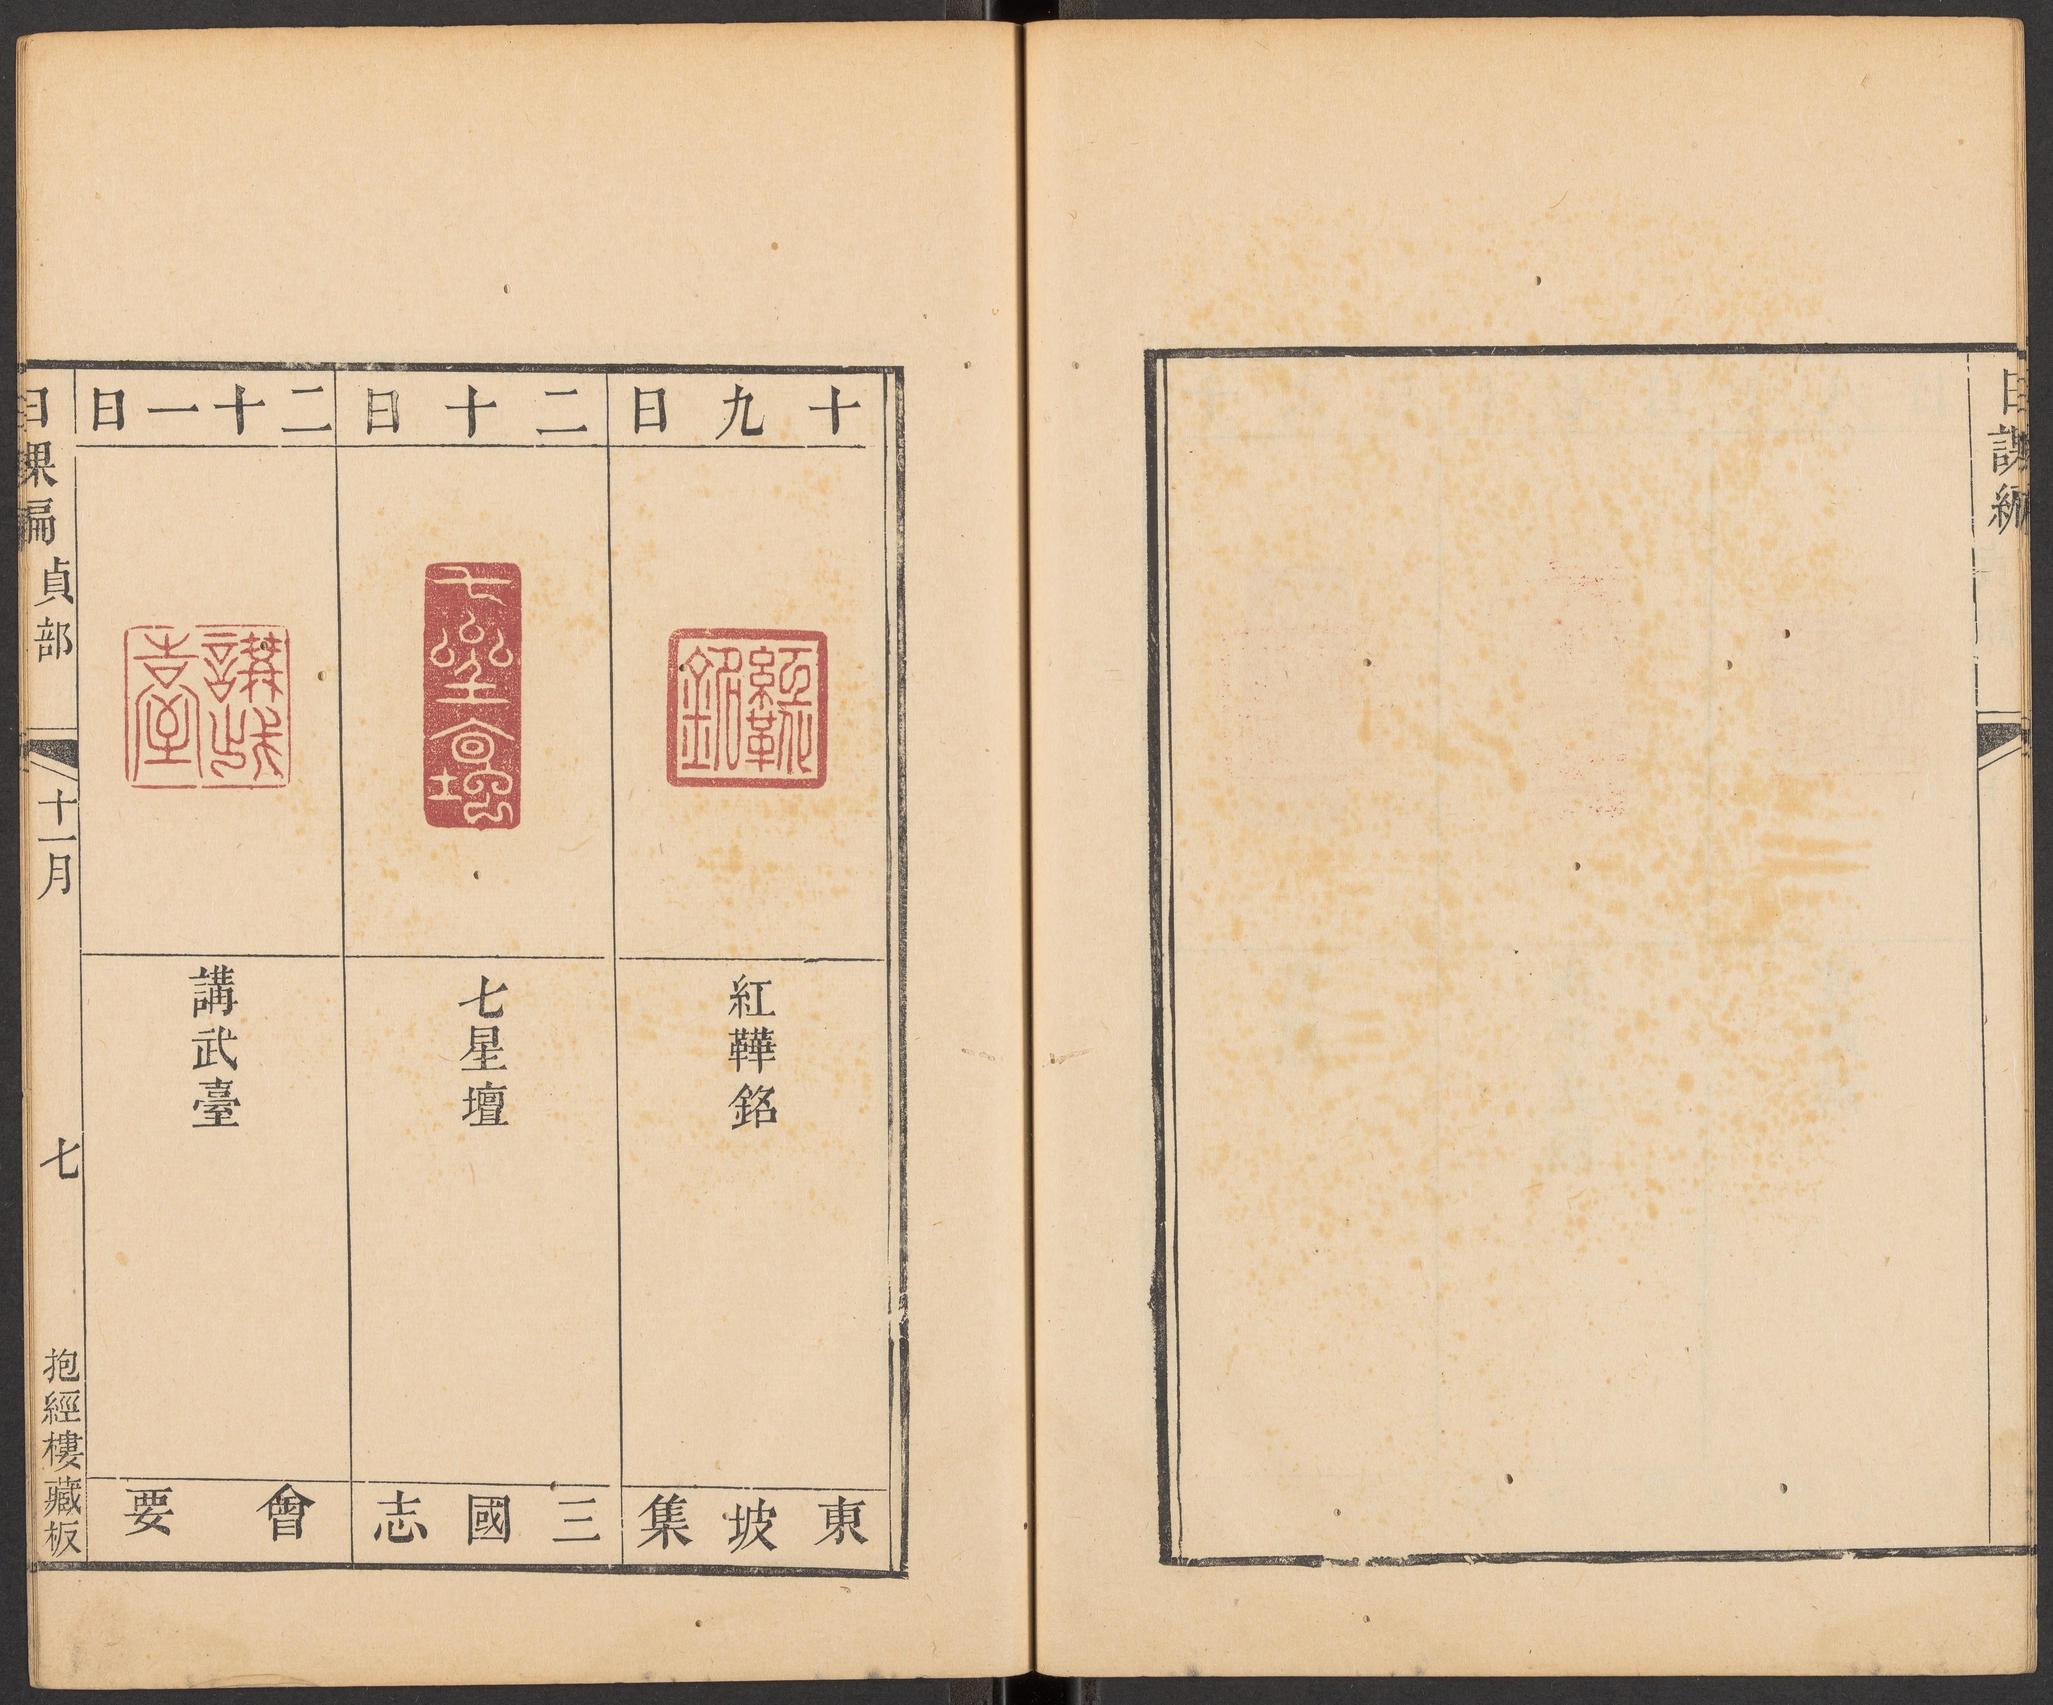 日課編
十九日
紅鞾銘
紅鞾銘
東坡集
二十日
七星壇
七星壇
三國志
二十一日
講武臺
講武臺
會要
日課編 貞部
十一月
七
抱經樓藏板